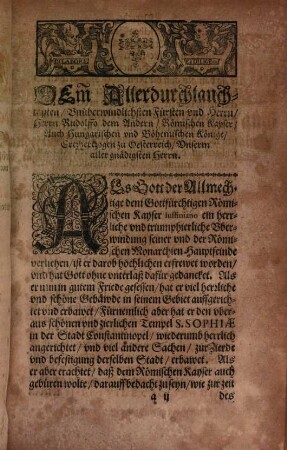 VIOLATORI VIOLENT
DEm Allerdurchlauch-
tigsten / Vnüberwindlichsten Fürsten vnd Herrn /
Herrn Rudolffo dem Andern / Römischen Kayser /
Auch Hungarischen vnd Böhemischen Könige /
Ertzhertzogen zu Oesterreich / Vnserm
aller gnädigsten Herrn.
ALs Gott der Allmech-
tige dem Gottfürchtigen Römi-
schen Kayser Iustiniano ein herr-
liche vnd triumphierliche Vber-
windung seiner vnd der Römi-
schen Monarchien Hauptfeinde
verliehen / ist er darob höchlichen erfrewet worden /
vnd hat Gott ohne vnterlaß dafür gedancket. Als
er nun in gutem Friede gesessen / hat er viel herzliche
vnd schöne Gebäwde in seinem Gebiet auffgerich-
tet vnd erbawet / Fürnemlich aber hat er den vber-
aus schönen vnd zierlichen Tempel S. SOPHIÆ
in der Stadt Constantinopel / wiederumb herrlich
angerichtet / vnd viel andere Sachen / zur Zierde
vnd befestigung derselben Stadt / erbawet. Als
er aber erachtet / daß dem Römischen Kayser auch
gebüren wolte / darauff bedacht zu seyn / wie zur zeit
q ij des